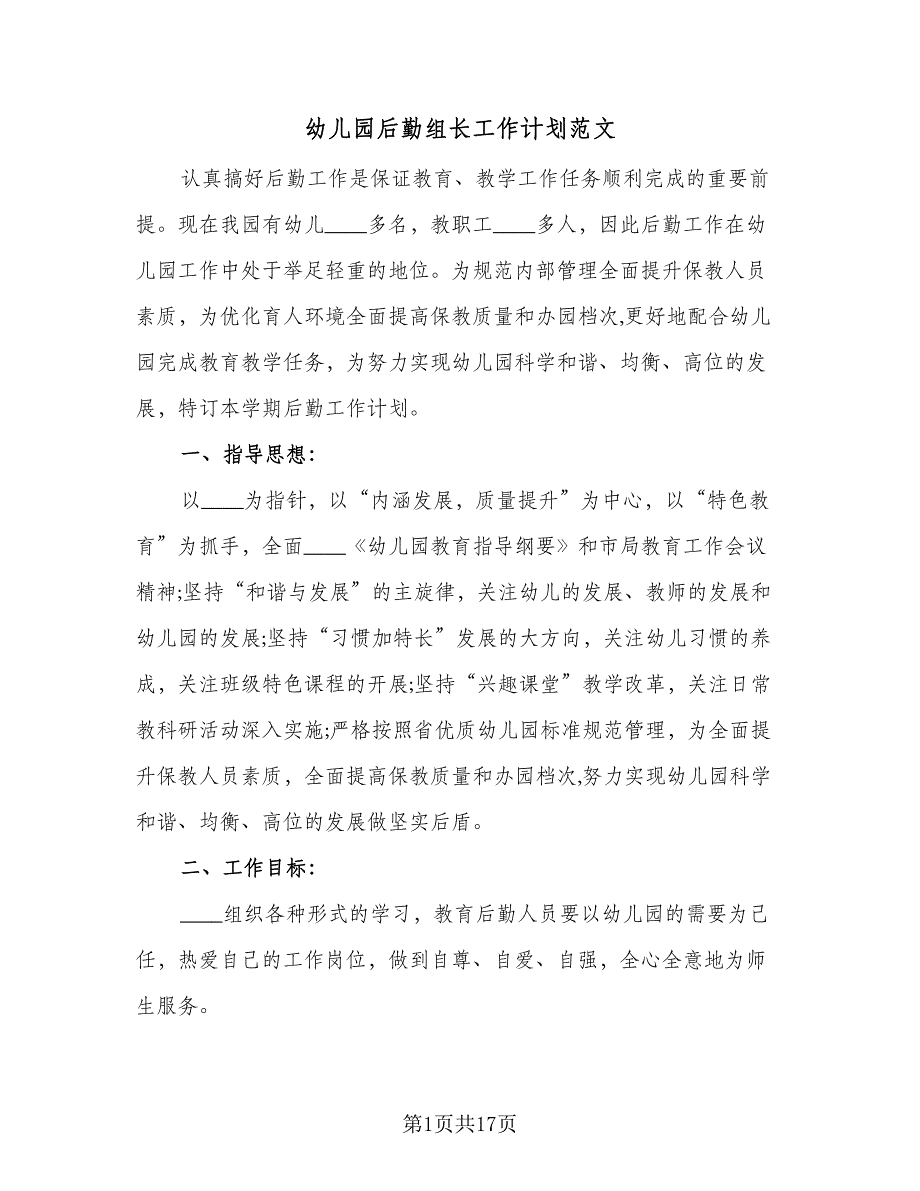 幼儿园后勤组长工作计划范文
认真搞好后勤工作是保证教育、教学工作任务顺利完成的重要前
提。现在我园有幼儿____多名，教职工____多人，因此后勤工作在幼
儿园工作中处于举足轻重的地位。为规范内部管理全面提升保教人员
素质，为优化育人环境全面提高保教质量和办园档次,更好地配合幼儿
园完成教育教学任务，为努力实现幼儿园科学和谐、均衡、高位的发
展，特订本学期后勤工作计划。
一、指导思想：
以____为指针，以“内涵发展，质量提升”为中心，以“特色教
育”为抓手，全面____《幼儿园教育指导纲要》和市局教育工作会议
精神;坚持“和谐与发展”的主旋律，关注幼儿的发展、教师的发展和
幼儿园的发展;坚持“习惯加特长”发展的大方向，关注幼儿习惯的养
成，关注班级特色课程的开展;坚持“兴趣课堂”教学改革，关注日常
教科研活动深入实施;严格按照省优质幼儿园标准规范管理，为全面提
升保教人员素质，全面提高保教质量和办园档次,努力实现幼儿园科学
和谐、均衡、高位的发展做坚实后盾。
二、工作目标：
____组织各种形式的学习，教育后勤人员要以幼儿园的需要为己
任，热爱自己的工作岗位，做到自尊、自爱、自强，全心全意地为师
生服务。
第1页共17页